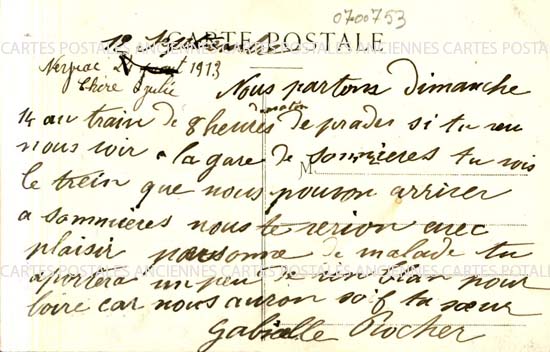 0700753
CARTE POSTALE
12 Septembre
Neyrac 1913
Chère Julie Nous partons dimanche
matin
14 au train de 8 heures de prades si tu veu
nous voir a la gare de sommières tu vois
le trein que nous pouvon arriver
a sommières nous te verion avec
plaisir personne de malade tu
aportera un peu de vin blan pour
boire car nous auron soif ta sœur
Gabrielle Rocher
CARTES POSTALES ANCIENNES CARTES POSTALES ANCIENNES CARTES POSTALES